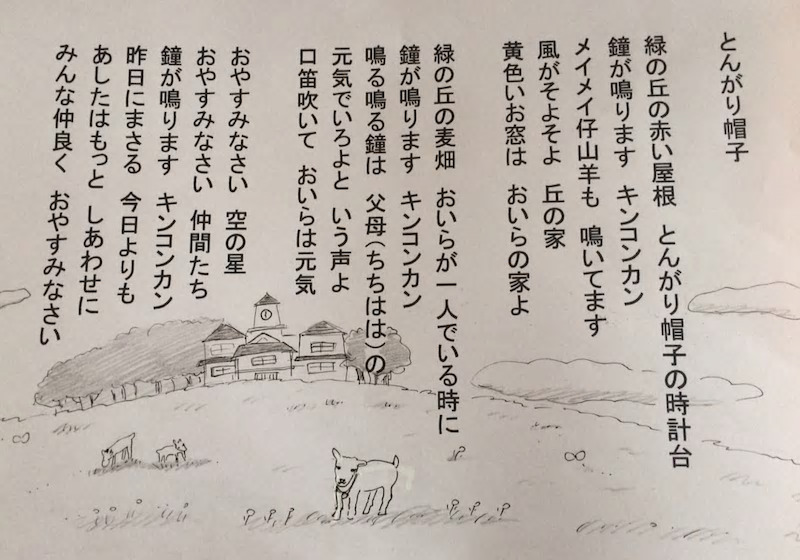 とんがり帽子
緑の丘の赤い屋根　とんがり帽子の時計台
鐘が鳴ります　キンコンカン
メイメイ仔山羊も　鳴いてます
風がそよそよ　丘の家
黄色いお窓は　おいらの家よ
緑の丘の麦畑　おいらが一人でいる時に
鐘が鳴ります　キンコンカン
鳴る鳴る鐘は　父母（ちちはは）の
元気でいろよと　いう声よ
口笛吹いて　おいらは元気
おやすみなさい　空の星
おやすみなさい　仲間たち
鐘が鳴ります　キンコンカン
昨日にまさる　今日よりも
あしたはもっと　しあわせに
みんな仲良く　おやすみなさい